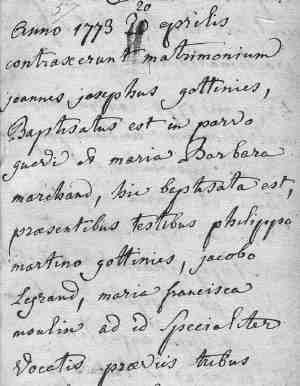 20
Anno 1773 20 aprilis
contraxerunt matrimonium
joannes josephus gottinies,
Baptisatus est in parvo
quevi et maria Barbara
marchand, hic baptisata est,
præsentibus testibus philippo
martino gottinies, jacobo
Legrand, maria francisca
moulin ad id specialiter
vocatis præviis tribus